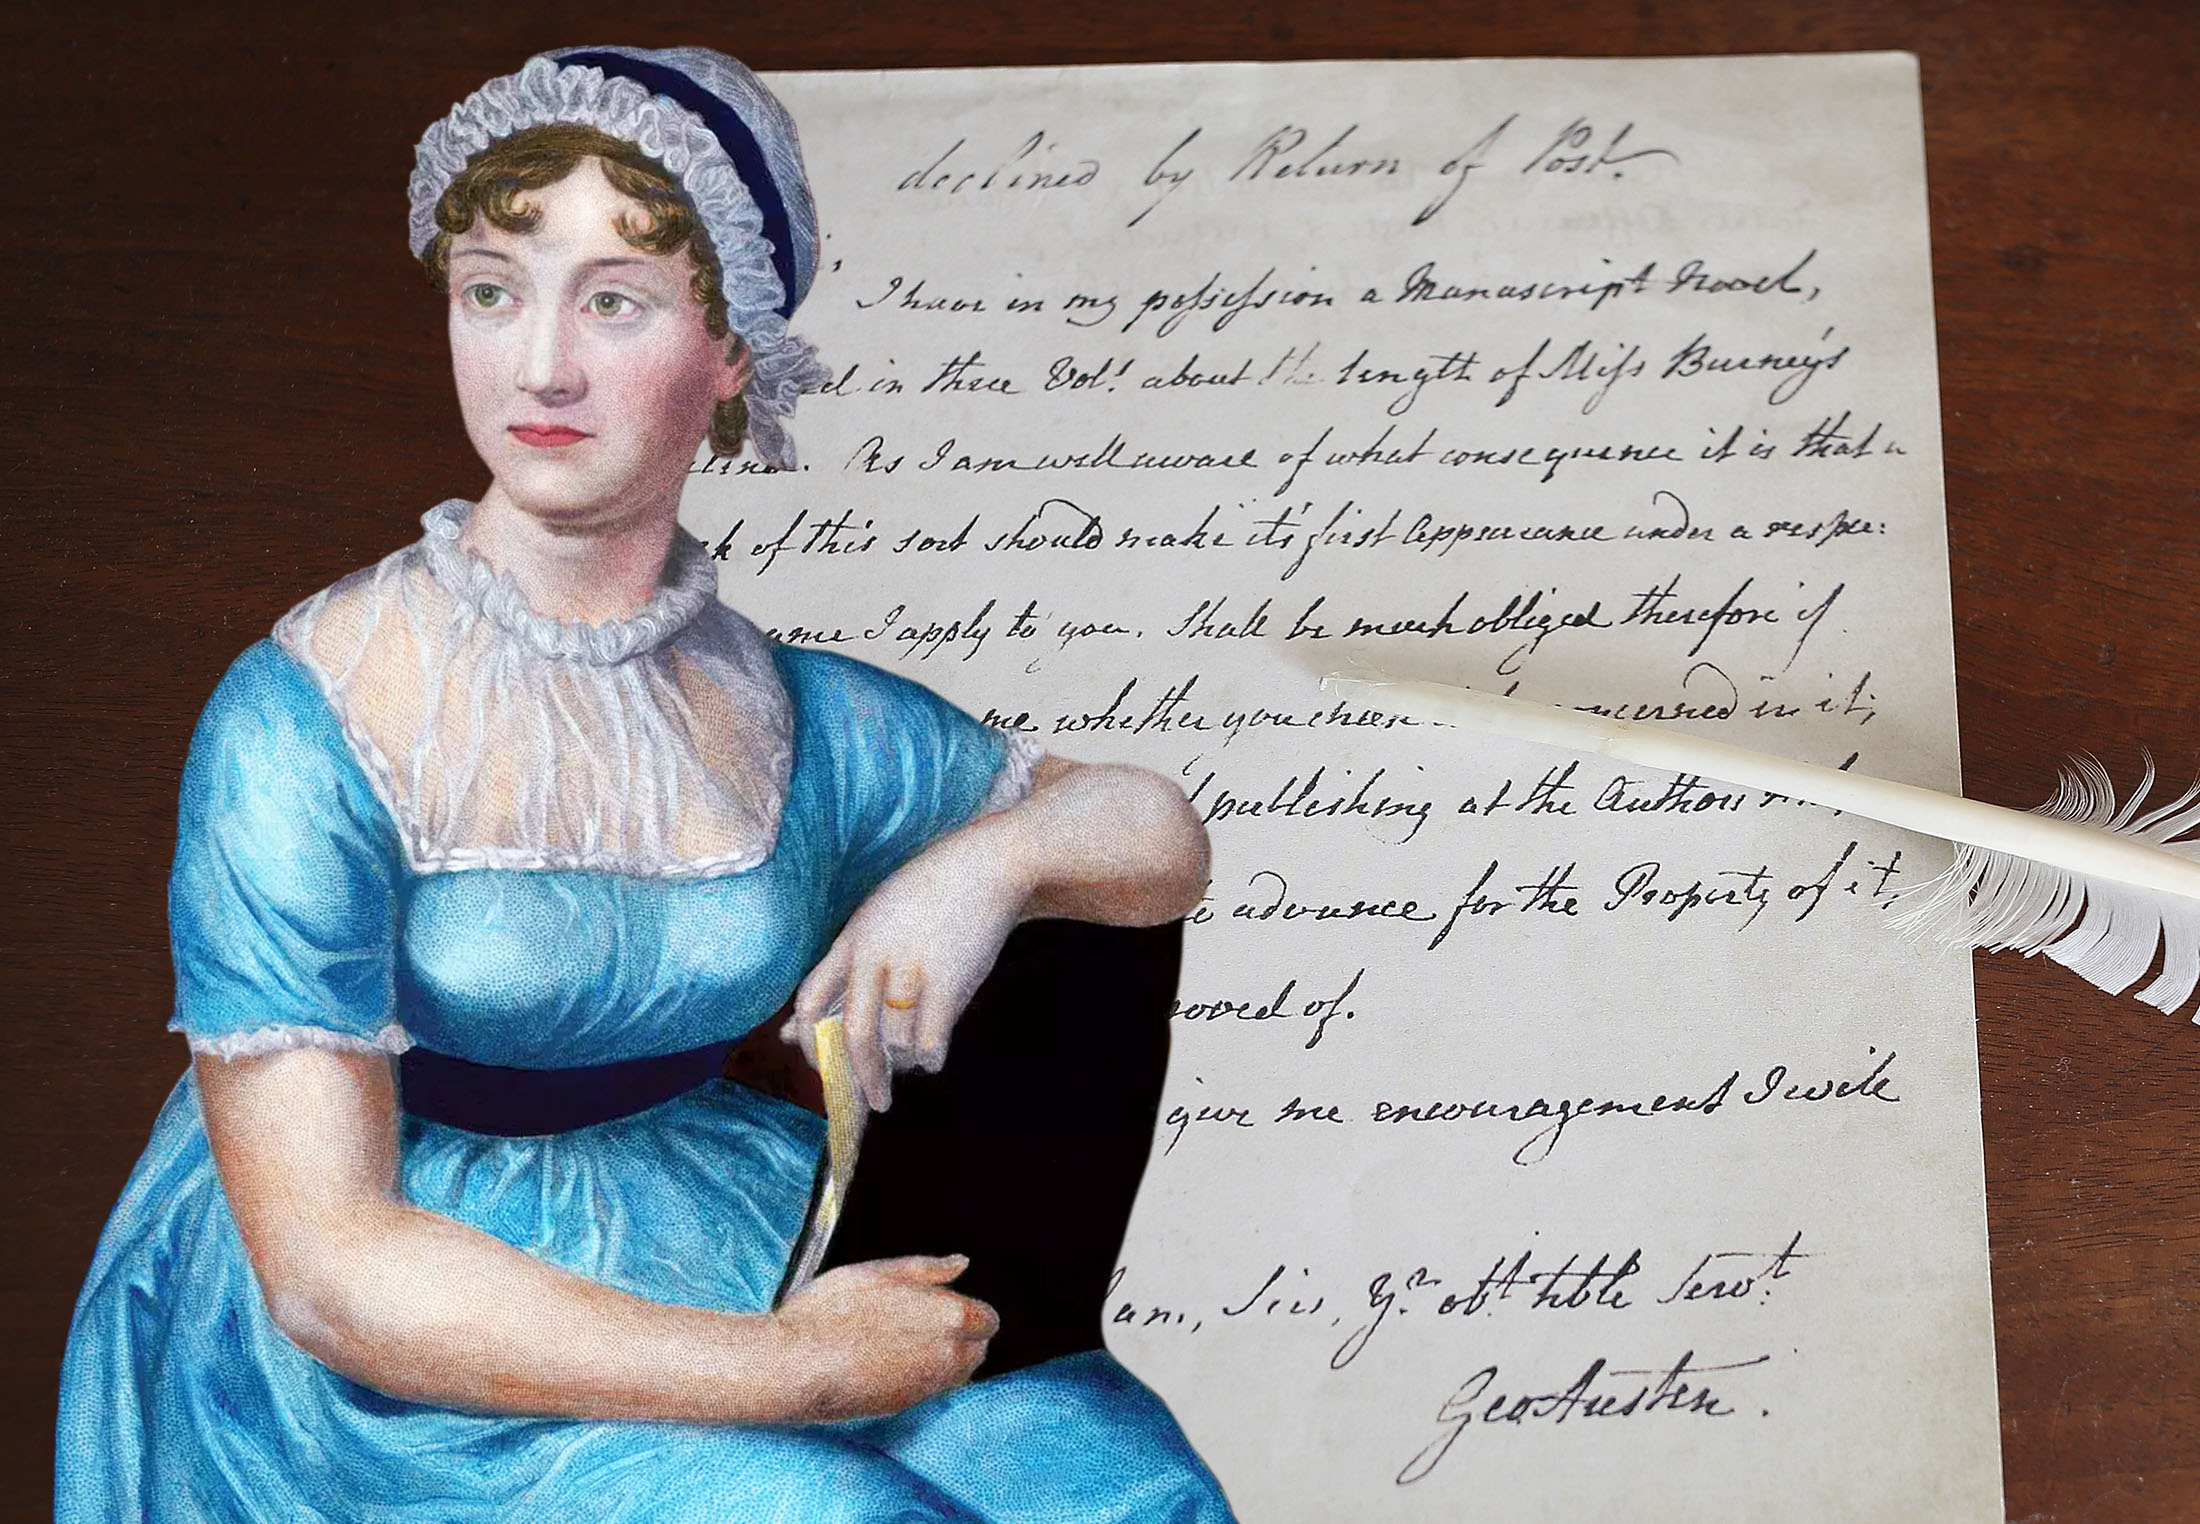 declined by Return of Post.
I have in my possession a Manuscript Novel,
in three Vols. about the length of Miss Burney's
As I am well aware of what consequence it is that a
of this sort should make it's first Appearance under a respe:
I apply to you. Shall be much obliged therefore if
me whether you in it;
publishing at the Author's
advance for the Property of it,
of.
give me encouragement I will
am, Sir, Yr. obt. hble Servt.
Geo Austen.